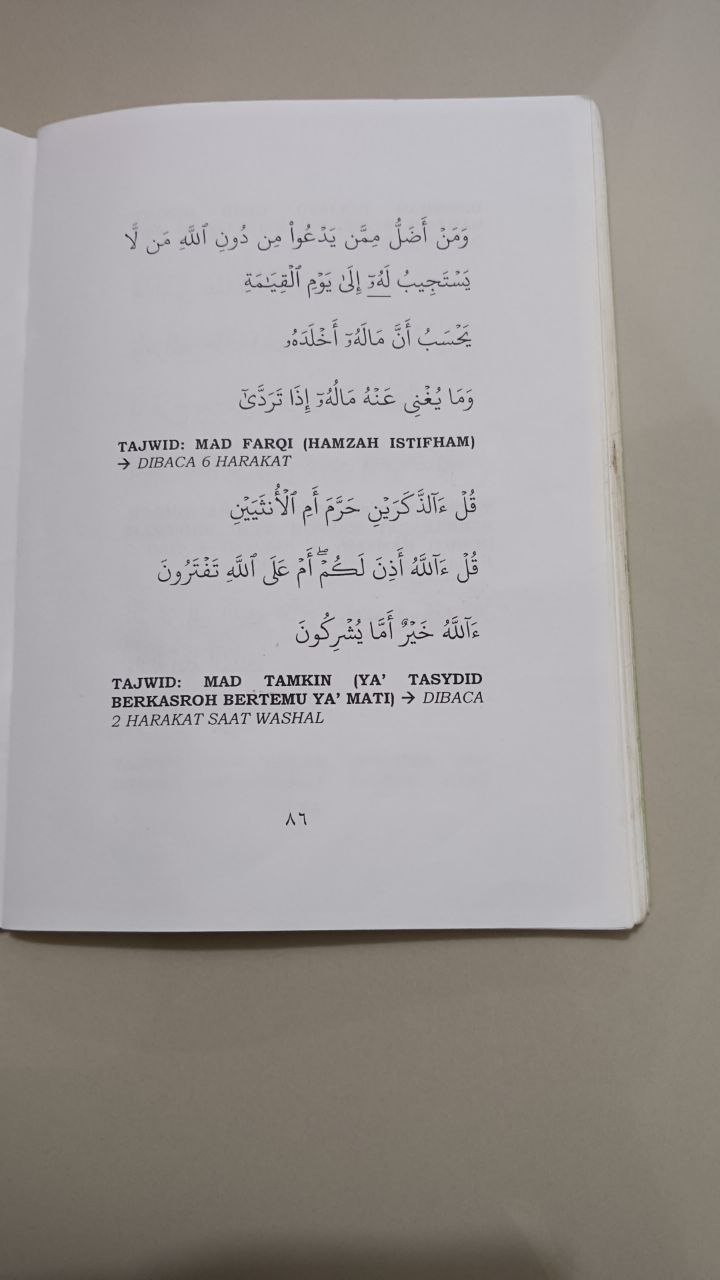 وَمَنْ أَضَلُّ مِمَّن يَدْعُوا۟ مِن دُونِ ٱللَّهِ مَن لَّا
يَسْتَجِيبُ لَهُۥٓ إِلَىٰ يَوْمِ ٱلْقِيَـٰمَةِ
يَحْسَبُ أَنَّ مَالَهُۥٓ أَخْلَدَهُۥ
وَمَا يُغْنِى عَنْهُ مَالُهُۥٓ إِذَا تَرَدَّىٰٓ
TAJWID: MAD FARQI (HAMZAH ISTIFHAM)
→ DIBACA 6 HARAKAT
قُلْ ءَآلذَّكَرَيْنِ حَرَّمَ أَمِ ٱلْأُنثَيَيْنِ
قُلْ ءَآللَّهُ أَذِنَ لَكُمْ ۖ أَمْ عَلَى ٱللَّهِ تَفْتَرُونَ
ءَآللَّهُ خَيْرٌ أَمَّا يُشْرِكُونَ
TAJWID: MAD TAMKIN (YA’ TASYDID
BERKASROH BERTEMU YA’ MATI) → DIBACA
2 HARAKAT SAAT WASHAL
٨٦